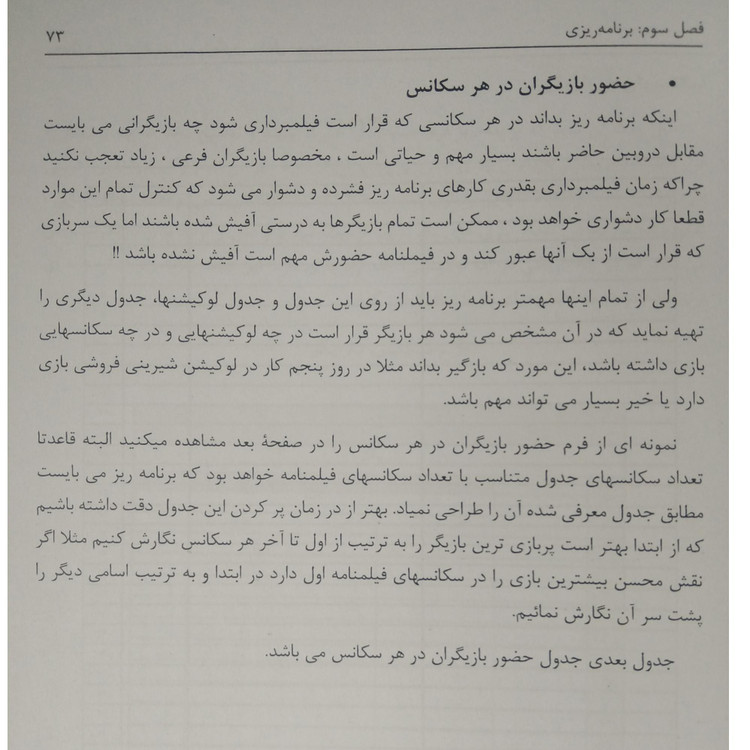 فصل سوم: برنامه‌ریزی ۷۳
• حضور بازیگران در هر سکانس
اینکه برنامه ریز بداند در هر سکانسی که قرار است فیلمبرداری شود چه بازیگرانی می بایست
مقابل دروبین حاضر باشند بسیار مهم و حیاتی است ، مخصوصا بازیگران فرعی ، زیاد تعجب نکنید
چراکه زمان فیلمبرداری بقدری کارهای برنامه ریز فشرده و دشوار می شود که کنترل تمام این موارد
قطعا کار دشواری خواهد بود ، ممکن است تمام بازیگرها به درستی آفیش شده باشند اما یک سربازی
که قرار است از بک آنها عبور کند و در فیملنامه حضورش مهم است آفیش نشده باشد !!
ولی از تمام اینها مهمتر برنامه ریز باید از روی این جدول و جدول لوکیشنها، جدول دیگری را
تهیه نماید که در آن مشخص می شود هر بازیگر قرار است در چه لوکیشنهایی و در چه سکانسهایی
بازی داشته باشد، این مورد که بازگیر بداند مثلا در روز پنجم کار در لوکیشن شیرینی فروشی بازی
دارد یا خیر بسیار می تواند مهم باشد.
نمونه ای از فرم حضور بازیگران در هر سکانس را در صفحۀ بعد مشاهده میکنید البته قاعدتا
تعداد سکانسهای جدول متناسب با تعداد سکانسهای فیلمنامه خواهد بود که برنامه ریز می بایست
مطابق جدول معرفی شده آن را طراحی نمیاد. بهتر از در زمان پر کردن این جدول دقت داشته باشیم
که از ابتدا بهتر است پربازی ترین بازیگر را به ترتیب از اول تا آخر هر سکانس نگارش کنیم مثلا اگر
نقش محسن بیشترین بازی را در سکانسهای فیلمنامه اول دارد در ابتدا و به ترتیب اسامی دیگر را
پشت سر آن نگارش نمائیم.
جدول بعدی جدول حضور بازیگران در هر سکانس می باشد.